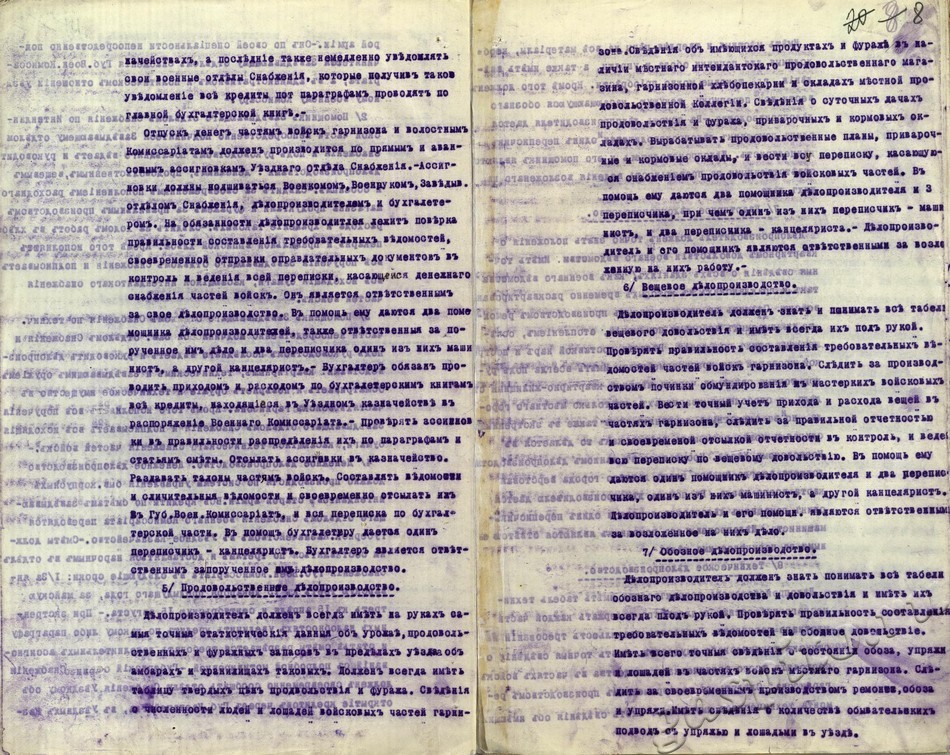 начействахъ, а послѣдніе также немедленно увѣдомлять
свои военные отдѣлы Снабженія, которые получив таков
увѣдомленіе всѣ кредиты пот параграфамъ проводятъ по
главной бухгалтерской книгѣ.-
Отпускъ денегъ частямъ войскъ гарнизона и волостнымъ
Комиссаріатамъ долженъ производится по прямымъ и аван-
совымъ ассигновкамъ Уѣзднаго отдѣла Снабженія.-Ассиг-
новки должны подписываться Военкомомъ, Военрукомъ, Завѣдыв.
отдѣломъ Снабженія, дѣлопроизводителемъ и бухгалте-
ромъ. На обязанности дѣлопроизводитлея лежитъ повѣрка
правильности составленія требовательныхъ вѣдомостей,
своевременной отправки оправдательныхъ документовъ въ
контроль и веденія всей переписки, касающейся денежнаго
снабженія частей войскъ. Онъ является отвѣтственнымъ
за свое дѣлопроизводство. Въ помощь ему даются два поме
мощника дѣлопроизводителей, также отвѣтственныя за по-
рученное имъ дѣло и два переписчика один изъ нихъ маши
нистъ, а другой канцеляристъ.- Бухгалтеръ обязанъ про-
водить приходомъ и расходомъ по бухгалтерскимъ книгамъ
всѣ кредиты, находящіеся въ Уѣздном казначействѣ въ
распоряженіе Военнаго Комиссаріата.- провѣрять ассигнов
ки въ правильности распредѣленія ихъ по параграфамъ и
статьямъ смѣты. Отсылать ассигновки въ казначейство.
Раздавать талоны частямъ войскъ. Составлять вѣдомости
и сличительныя вѣдомости и своевременно отсылать ихъ
въ Губ.Воен.Комиссаріатъ, и вся переписка по бухгал-
терской части. Въ помощь бухгалтеру дается одинъ
переписчикъ - канцеляристъ. Бухгалтеръ является отвѣт-
ственнымъ запорученное ему дѣлопроизводство.
5/ Продовольственное дѣлопроизводство.
Дѣлопроизводитель долженъ всегда имѣть на рукахъ са-
мыя точныя статистическія данныя объ урожаѣ, продоволь-
ственныхъ и фуражныхъ запасовъ въ предѣлахъ уѣзда объ
амбарахъ и хранилищахъ таковыхъ. Долженъ всегда имѣть
таблицу твердыхъ цѣнъ продовольствія и фуража. Свѣдѣнія
о численности людей и лошадей войсковыхъ частей гарни-
8
зона.Свѣдѣнія объ имѣющихся продуктахъ и фуражѣ въ на-
личіи мѣстнаго интендантскаго продовольственнаго мага-
зина, гарнизонной хлѣбопекарни и складахъ мѣстной про-
довольственной Коллегіи. Свѣдѣнія о суточныхъ дачахъ
продовольствія и фуража, приварочныхъ и кормовыхъ ок-
ладахъ. Вырабатывать продовольственные планы, привароч-
ные и кормовые оклады, и вести всу переписку, касающую-
ся снабженіемъ продовольствія войсковыхъ частей. Въ
помощь ему даются два помощника дѣлопроизводителя и 3
переписчика, при чемъ одинъ изъ нихъ переписчикъ - маши
нистъ, и два переписчика - канцеляриста.- Дѣлопроизво-
дитель и его помощник являются отвѣтственными за возло
женную на нихъ работу.-
6/ Вещевое дѣлопроизводство.
Дѣлопроизводитель долженъ знать и понимать всѣ табели
вещевого довольствія и имѣть всегда ихъ под рукой.
Провѣрять правильность составленія требовательныхъ вѣ-
домостей частей войскъ гарнизона. Слѣдить за производ-
ствомъ починки обмундированія въ мастерких войсковыхъ
частей. Вести точный учет прихода и расхода вещей въ
частяхъ гарнизона, слѣдить за правильней отчетностью
и своевременой отсылкой отчетности въ контроль, и веден
всю переписку по вещевому довольствію. Въ помощь ему
даются один помощникъ дѣлопроизводителя и два перепис
чика, один изъ нихъ машинистъ, а другой канцеляристъ.
Дѣлопроизводитель и его помощн. являются отвѣтственными
за возложенное на нихъ дѣло.
7/ Обозное дѣлопроизводство.
Дѣлопроизводитель долженъ знать понимать всѣ табели
обознаго дѣлопроизводства и довольствія и имѣть ихъ
всегда плод рукой. Провѣрять правильность составленія
требовательныхъ вѣдомостей на обозное довольствіе.
Имѣть всего точныя свѣдѣнія о состояніи обоза, упряжи
и лошадей въ частяхъ войскъ мѣстнаго гарнизона. Слѣ-
дить за своевременнымъ производствомъ ремонта,обоза
и упряжи.Имѣть свѣдѣнія о количествѣ обывательскихъ
подводъ съ упряжью и лошадьми въ уѣздѣ.